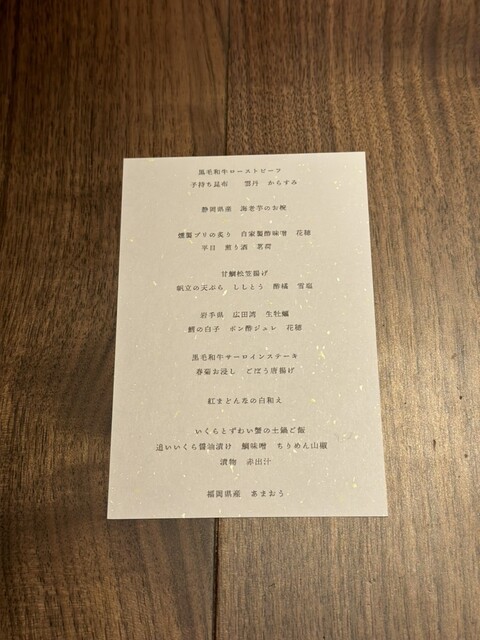 黒毛和牛ローストビーフ
子持ち昆布　雲丹　からすみ
静岡県産　海老芋のお椀
燻製ブリの炙り　自家製酢味噌　花穂
平目　煎り酒　茗荷
甘鯛松笠揚げ
帆立の天ぷら　ししとう　酢橘　雪塩
岩手県　広田湾　生牡蠣
鱈の白子　ポン酢ジュレ　花穂
黒毛和牛サーロインステーキ
春菊お浸し　ごぼう唐揚げ
紅まどんなの白和え
いくらとずわい蟹の土鍋ご飯
追いいくら醤油漬け　鯛味噌　ちりめん山椒
漬物　赤出汁
福岡県産　あまおう